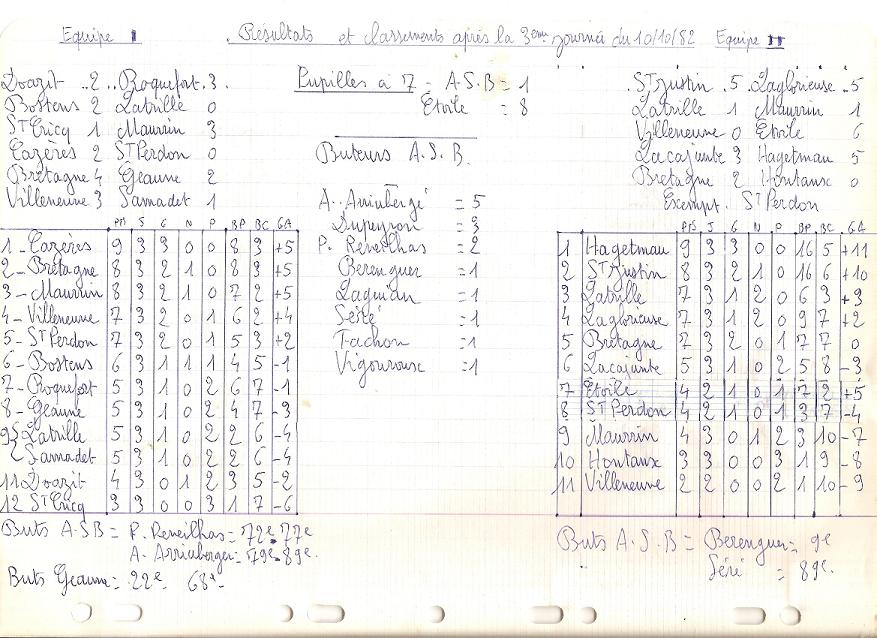 Equipe I Résultats et classements après la 3ème journée du 10/10/82 Equipe II
Doazit 2 Roquefort 3
Bostens 2 Latrille 0
St Cricq 1 Maurrin 3
Cazères 2 St Perdon 0
Bretagne 4 Geaune 2
Villeneuve 3 Samadet 1
Pts J G N P BP BC GA
1 - Cazères 9 3 3 0 0 8 3 +5
2 - Bretagne 8 3 2 1 0 8 3 +5
3 - Maurrin 8 3 2 1 0 7 2 +5
4 - Villeneuve 7 3 2 0 1 6 2 +4
5 - St Perdon 7 3 2 0 1 5 3 +2
6 - Bostens 6 3 1 1 1 4 5 -1
7 - Roquefort 5 3 1 0 2 6 7 -1
8 - Geaune 5 3 1 0 2 4 7 -3
9 Latrille 5 3 1 0 2 2 6 -4
Samadet 5 3 1 0 2 2 6 -4
11 Doazit 4 3 0 1 2 3 5 -2
12 St Cricq 3 3 0 0 3 1 7 -6
Buts A.S.B = P. Reveilhas = 72e. 77e
A. Arriuberger = 79e. 89e.
Buts Geaune = 22e 68e
Pupilles à 7 - A.S.B = 1
Etoile = 8
Buteurs A.S.B.
A. Arriubergé = 5
Dupeyron = 3
P. Reveilhas = 2
Berenguer = 1
Laquian = 1
Séré = 1
Tachon = 1
Vigouroux = 1
St Justin 5 Laglorieuse 5
Latrille 1 Maurrin 1
Villeneuve 0 Etoile 6
Lacajunte 3 Hagetmau 5
Bretagne 2 Hontanx 0
Exempt. St Perdon
Pts J G N P BP BC GA
1 Hagetmau 9 3 3 0 0 16 5 +11
2 St Justin 8 3 2 1 0 16 6 +10
3 Latrille 7 3 1 2 0 6 3 +3
4 Laglorieuse 7 3 1 2 0 9 7 +2
5 Bretagne 7 3 2 0 1 7 7 0
6 Lacajunte 5 3 1 0 2 5 8 -3
7 Etoile 4 2 1 0 1 7 2 +5
8 St Perdon 4 2 1 0 1 3 7 -4
9 Maurrin 4 3 0 1 2 3 10 -7
10 Hontanx 3 3 0 0 3 1 9 -8
11 Villeneuve 2 2 0 0 2 1 10 -9
Buts A.S.B = Berenguer = 9e
Séré = 89e.